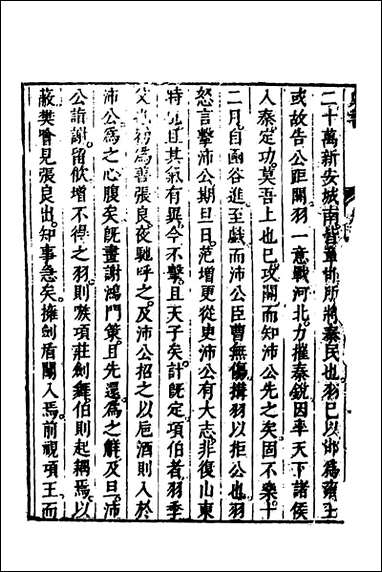 二十萬新安城南皆章邯所將秦民也羽已以邯爲雍王
或故告公距關羽一意戰河北力摧秦銳因率天下諸侯
人秦定功莫吾上也已攻關而知沛公先之矣固不樂十
二月自函谷進至戲而沛公臣曹無傷搆羽以拒公也羽
怒言擊沛公期旦日范增更從臾沛公有大志非復山東
時且其氣有異今不擊且天子矣計旣定項伯者羽季
父也初爲善張良夜馳呼之及沛公招之以巵酒則入於
沛公爲之心腹矣旣畫謝鴻門策且先還爲之解及旦沛
公詣謝留飲增不得之羽則嗾項莊劍舞伯則起耦焉以
蔽樊噲見張良出知事急矣擁劍盾闖入焉前視項王而